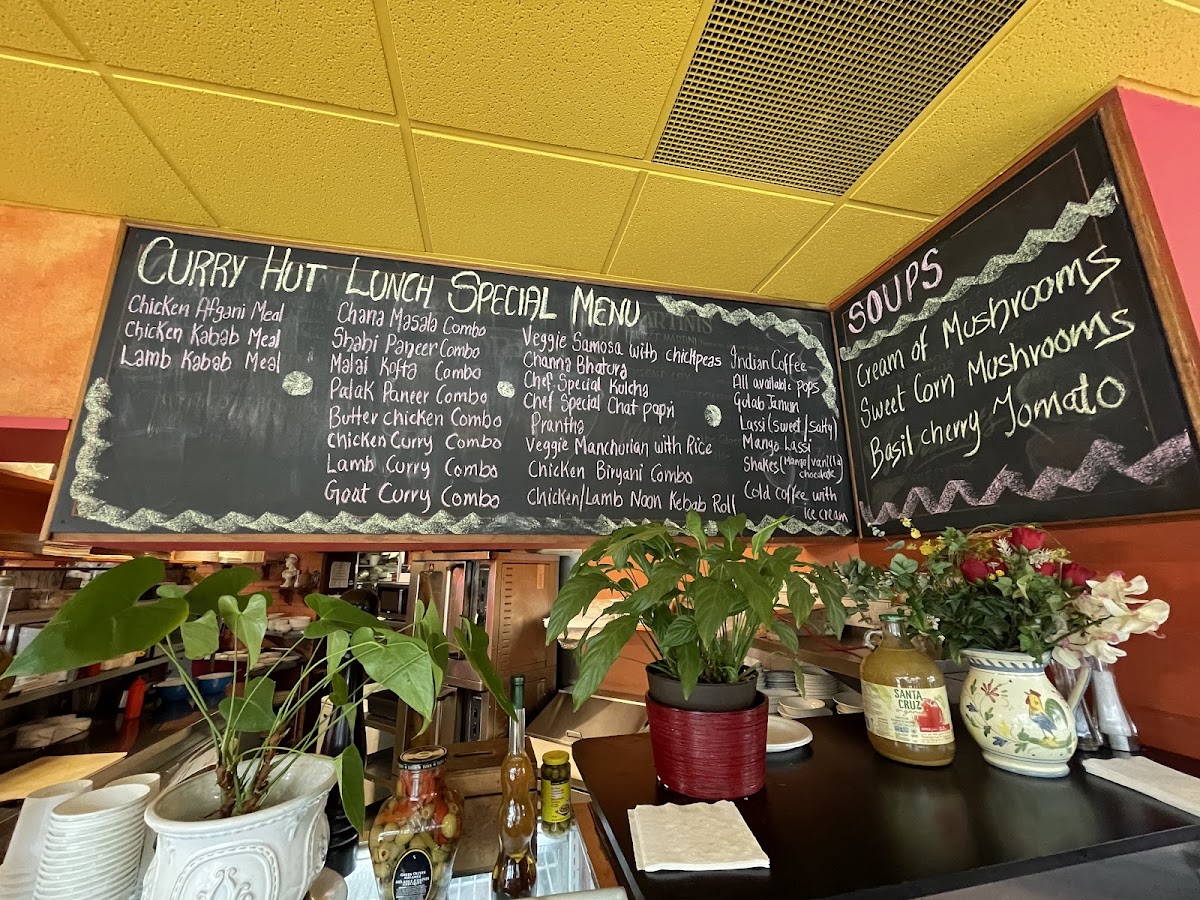 CURRY HUT LUNCH SPECIAL MENU
Chicken Afgani Meal
Chicken Kabab Meal
Lamb Kabab Meal
Chana Masala Combo
Shahi Paneer Combo
Malai Kofta Combo
Palak Paneer Combo
Butter chicken Combo
chicken Curry Combo
Lamb Curry Combo
Goat Curry Combo
Veggie Samosa with chickpeas
Channa Bhatura
Chef Special Kulcha
Chef Special Chat papri
Prantha
Veggie Manchurian with Rice
Chicken Biryani Combo
Chicken/Lamb Noon Kebab Roll
Indian Coffee
All available pops
Gulab Jamun
Lassi (sweet/salty)
Mango Lassi
Shakes (Mango/vanilla)
chocolate)
Cold coffee with
ice cream
SOUPS
Cream of Mushrooms
Sweet Corn Mushrooms
Basil cherry Tomato
SANTA
CRUZ